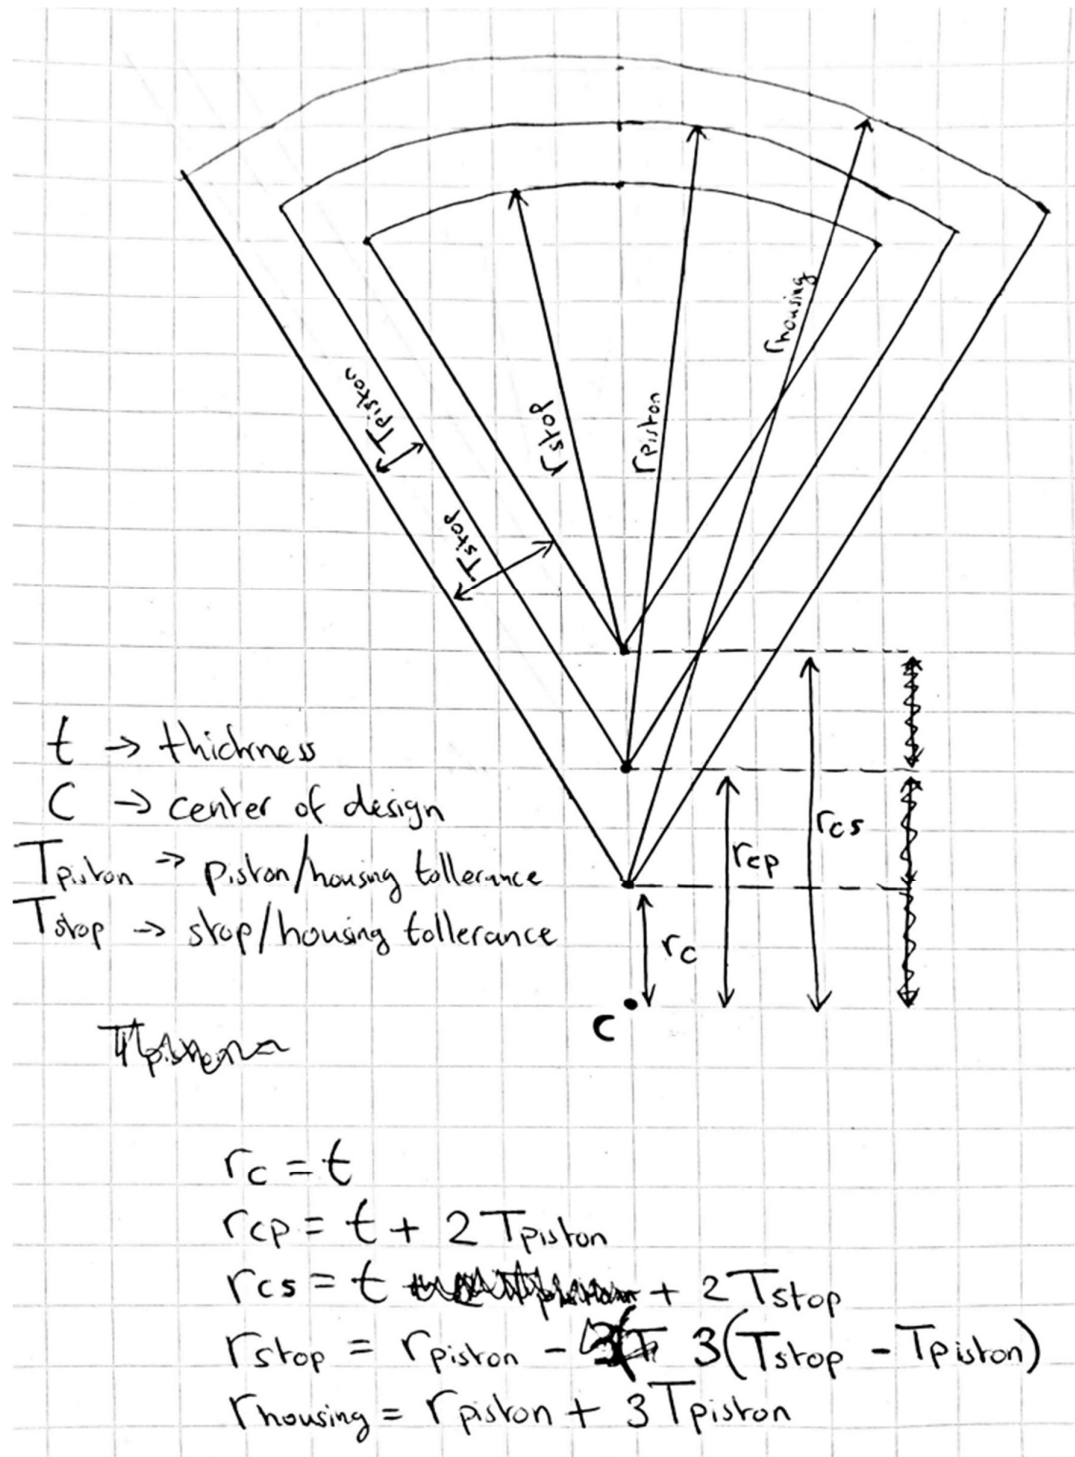 r housing
T piston
r stop
r piston
T stop
t → thickness
C → center of design
T piston → piston/housing tollerance
T stop → stop/housing tollerance
rcs
rcp
rc
C
rc = t
rcp = t + 2 T piston
rcs = t + 2 T stop
r stop = r piston - 3(T stop - T piston)
r housing = r piston + 3 T piston